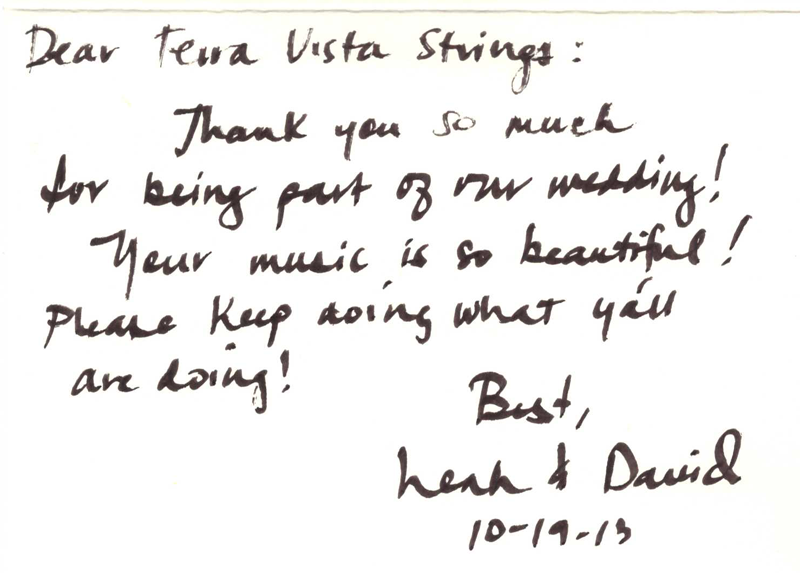 Dear Terra Vista Strings:
Thank you so much
for being part of our wedding!
Your music is so beautiful!
Please keep doing what ya'll
are doing!
Best,
Leah & David
10-19-13